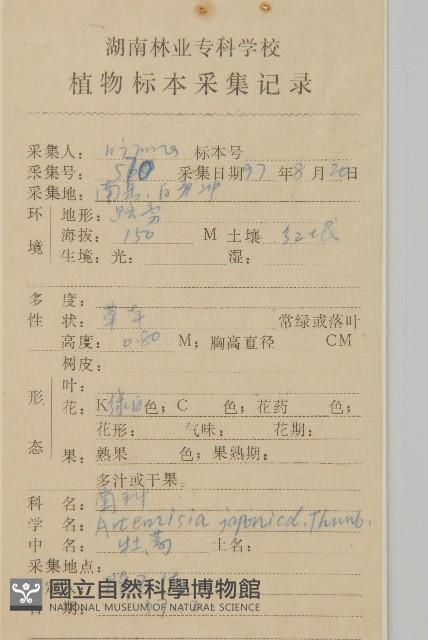 湖南林业专科学校
植物标本采集记录
采集人： 标本号
采集号： 采集日期97年8月20日
采集地：
环境 地形：路旁
海拔：150 M 土壤 红壤
生境：光： 湿：
多度：
性状：草本 常绿或落叶
高度：0.80 M；胸高直径 CM
树皮：
形态 叶：
花：K绿白色；C 色；花药 色；
花形： 气味： 花期：
果：熟果 色；果熟期：
多汁或干果。
科名：菊科
学名：Artemisia japonica. Thunb.
中名：牡蒿 土名：
采集地点：
國立自然科學博物館
NATIONAL MUSEUM OF NATURAL SCIENCE
日期：